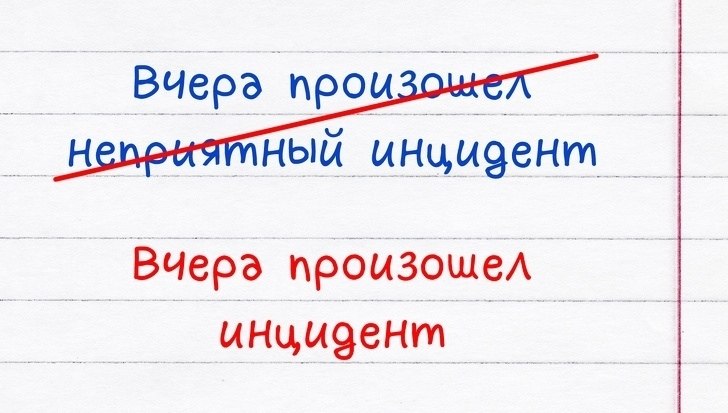 Вчера произошел
неприятный инцидент
Вчера произошел
инцидент